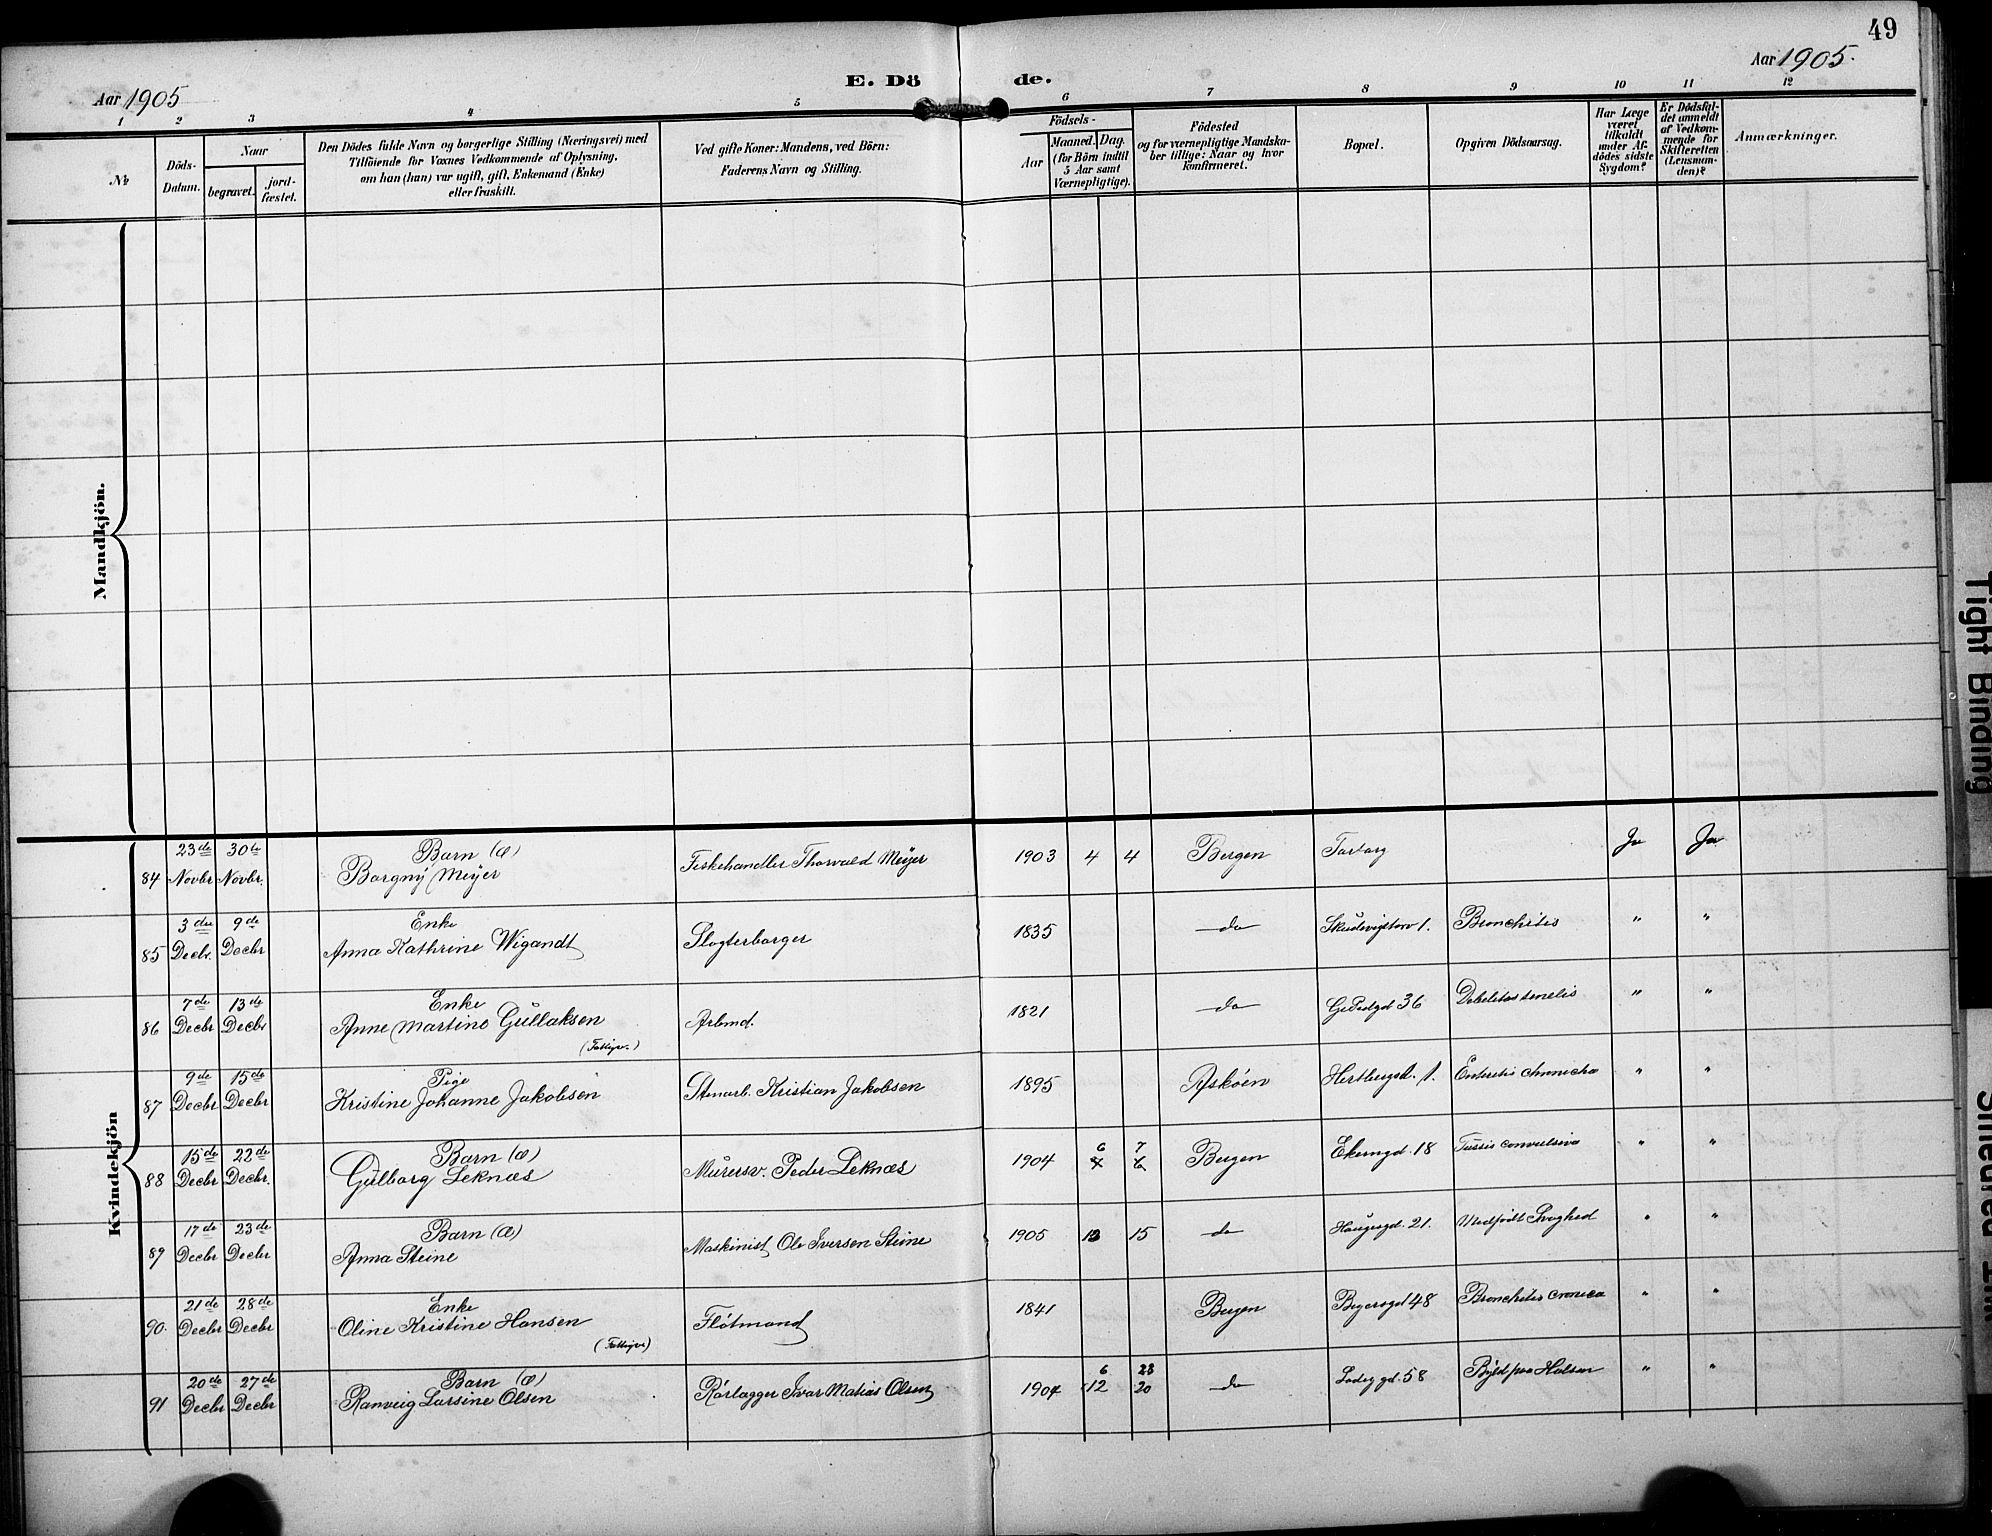 49
Aar 1905
E. Dö de.
Aar 1905.
1 2 3 4 5 6 7 8 9 10 11 12
No
Döds-Datum.
Naar
begravet.
jord-fæstet.
Den Dödes fulde Navn og borgerlige Stilling (Næringsvei) med
Tilföiende for Voxnes Vedkommende af Oplysning,
om han (hun) var ugift, gift, Enkemand (Enke)
eller fraskilt.
Ved gifte Koner: Mandens, ved Börn:
Faderens Navn og Stilling.
Födsels-
Aar
Maaned. Dag.
(for Börn indtil
5 Aar samt
Værnepligtige).
Födested
og for værnepligtige Mandska-
ber tillige: Naar og hvor
konfirmeret.
Bopæl.
Opgiven Dödsaarsag.
Har Læge
været
tilkaldt
under Af-
dödes sidste
Sygdom?
Er Dödsfal-
det anmeldt
af Vedkom-
mende for
Skifteretten
(Lensman-
den)?
Anmærkninger.
Mandkjön.
Kvindekjön
84 23de Novbr 30te Novbr. Barn (æ) Borgny Meyer Fiskehandler Thorvald Meyer 1903 4 4 Bergen Torborg Ja Ja
85 3die Decbr. 9de Decbr Enke Anna Kathrine Wigandt Slagterborger 1835 do Skudevigstorv 1. Bronchitis " "
86 7de Decbr 13de Decbr Enke Anne Martine Gullaksen (Fattigv.) Arbmd. 1821 do 36 Debelitas senelis " "
87 9de Decbr 15de Decbr Pige Kristine Johanne Jakobsen Stenarb. Kristian Jakobsen 1895 Askøen 1. Enteretis chronicha " "
88 15de Decbr 22de Decbr. Barn (æ) Gulborg Leknæs Murersv. Peder Leknæs 1904 6 7 Bergen Ekerngd. 18 Tussis convulsiva " "
89 17de Decbr 23de Decbr Barn (æ) Anna Steine Maskinist Ole Iversen Steine 1905 15 do Haugegd. 21. Medfødt Svaghed " "
90. 21de Decbr 28de Decbr Enke Oline Kristine Hansen (Fattigv) Fløtmand 1841 Bergen 48 Bronchitis cronica " "
91 20de Decbr 27de Decbr Barn (æ) Ranveig Larsine Olsen Rørlægger Ivar Matias Olsen 1904 6 12 23 20 do Ladeggd. 58 Byld paa Halsen " "
Tight Binding